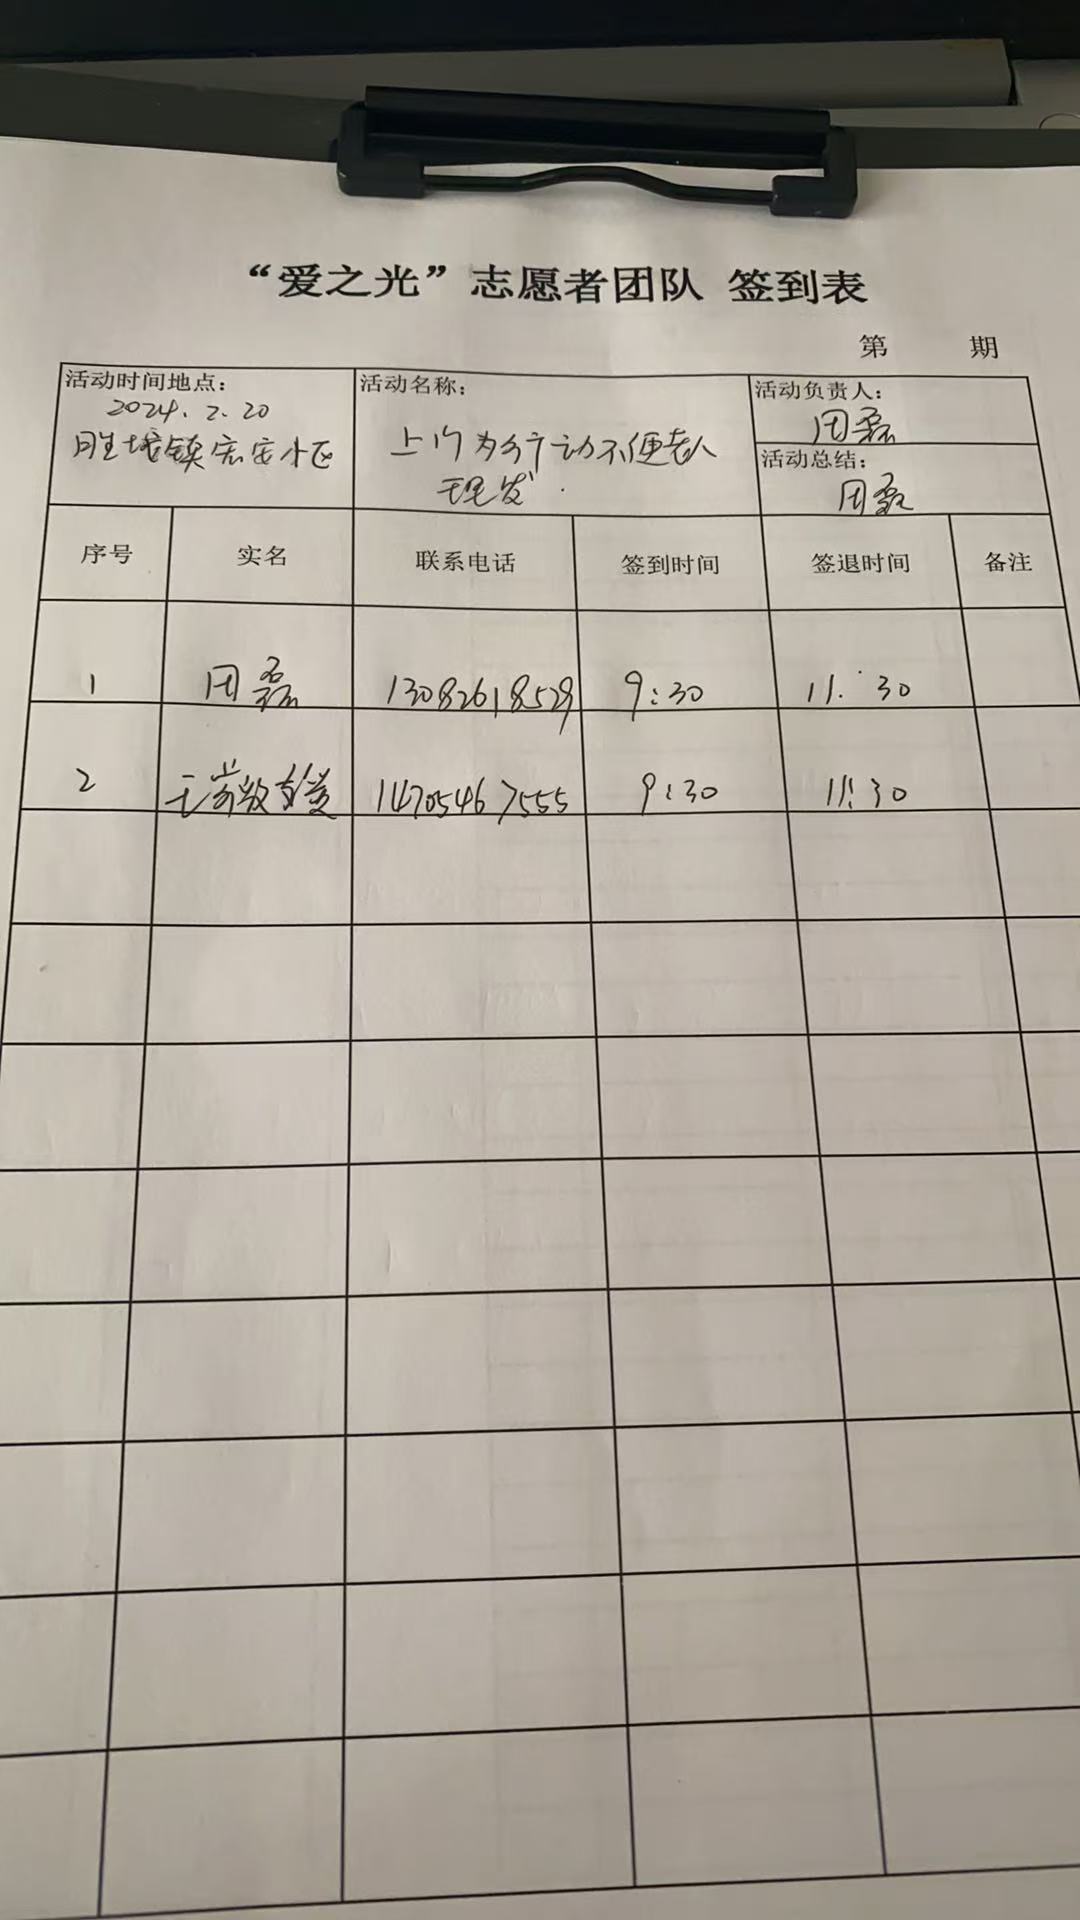 “爱之光”志愿者团队 签到表
第 期
活动时间地点：
2024.2.20
胜坨镇宏安小区
活动名称：
上门为行动不便老人
理发.
活动负责人：
周磊
活动总结：
周磊
序号 实名 联系电话 签到时间 签退时间 备注
1 周磊 13082618529 9:30 11:30
2 14705467555 9:30 11:30